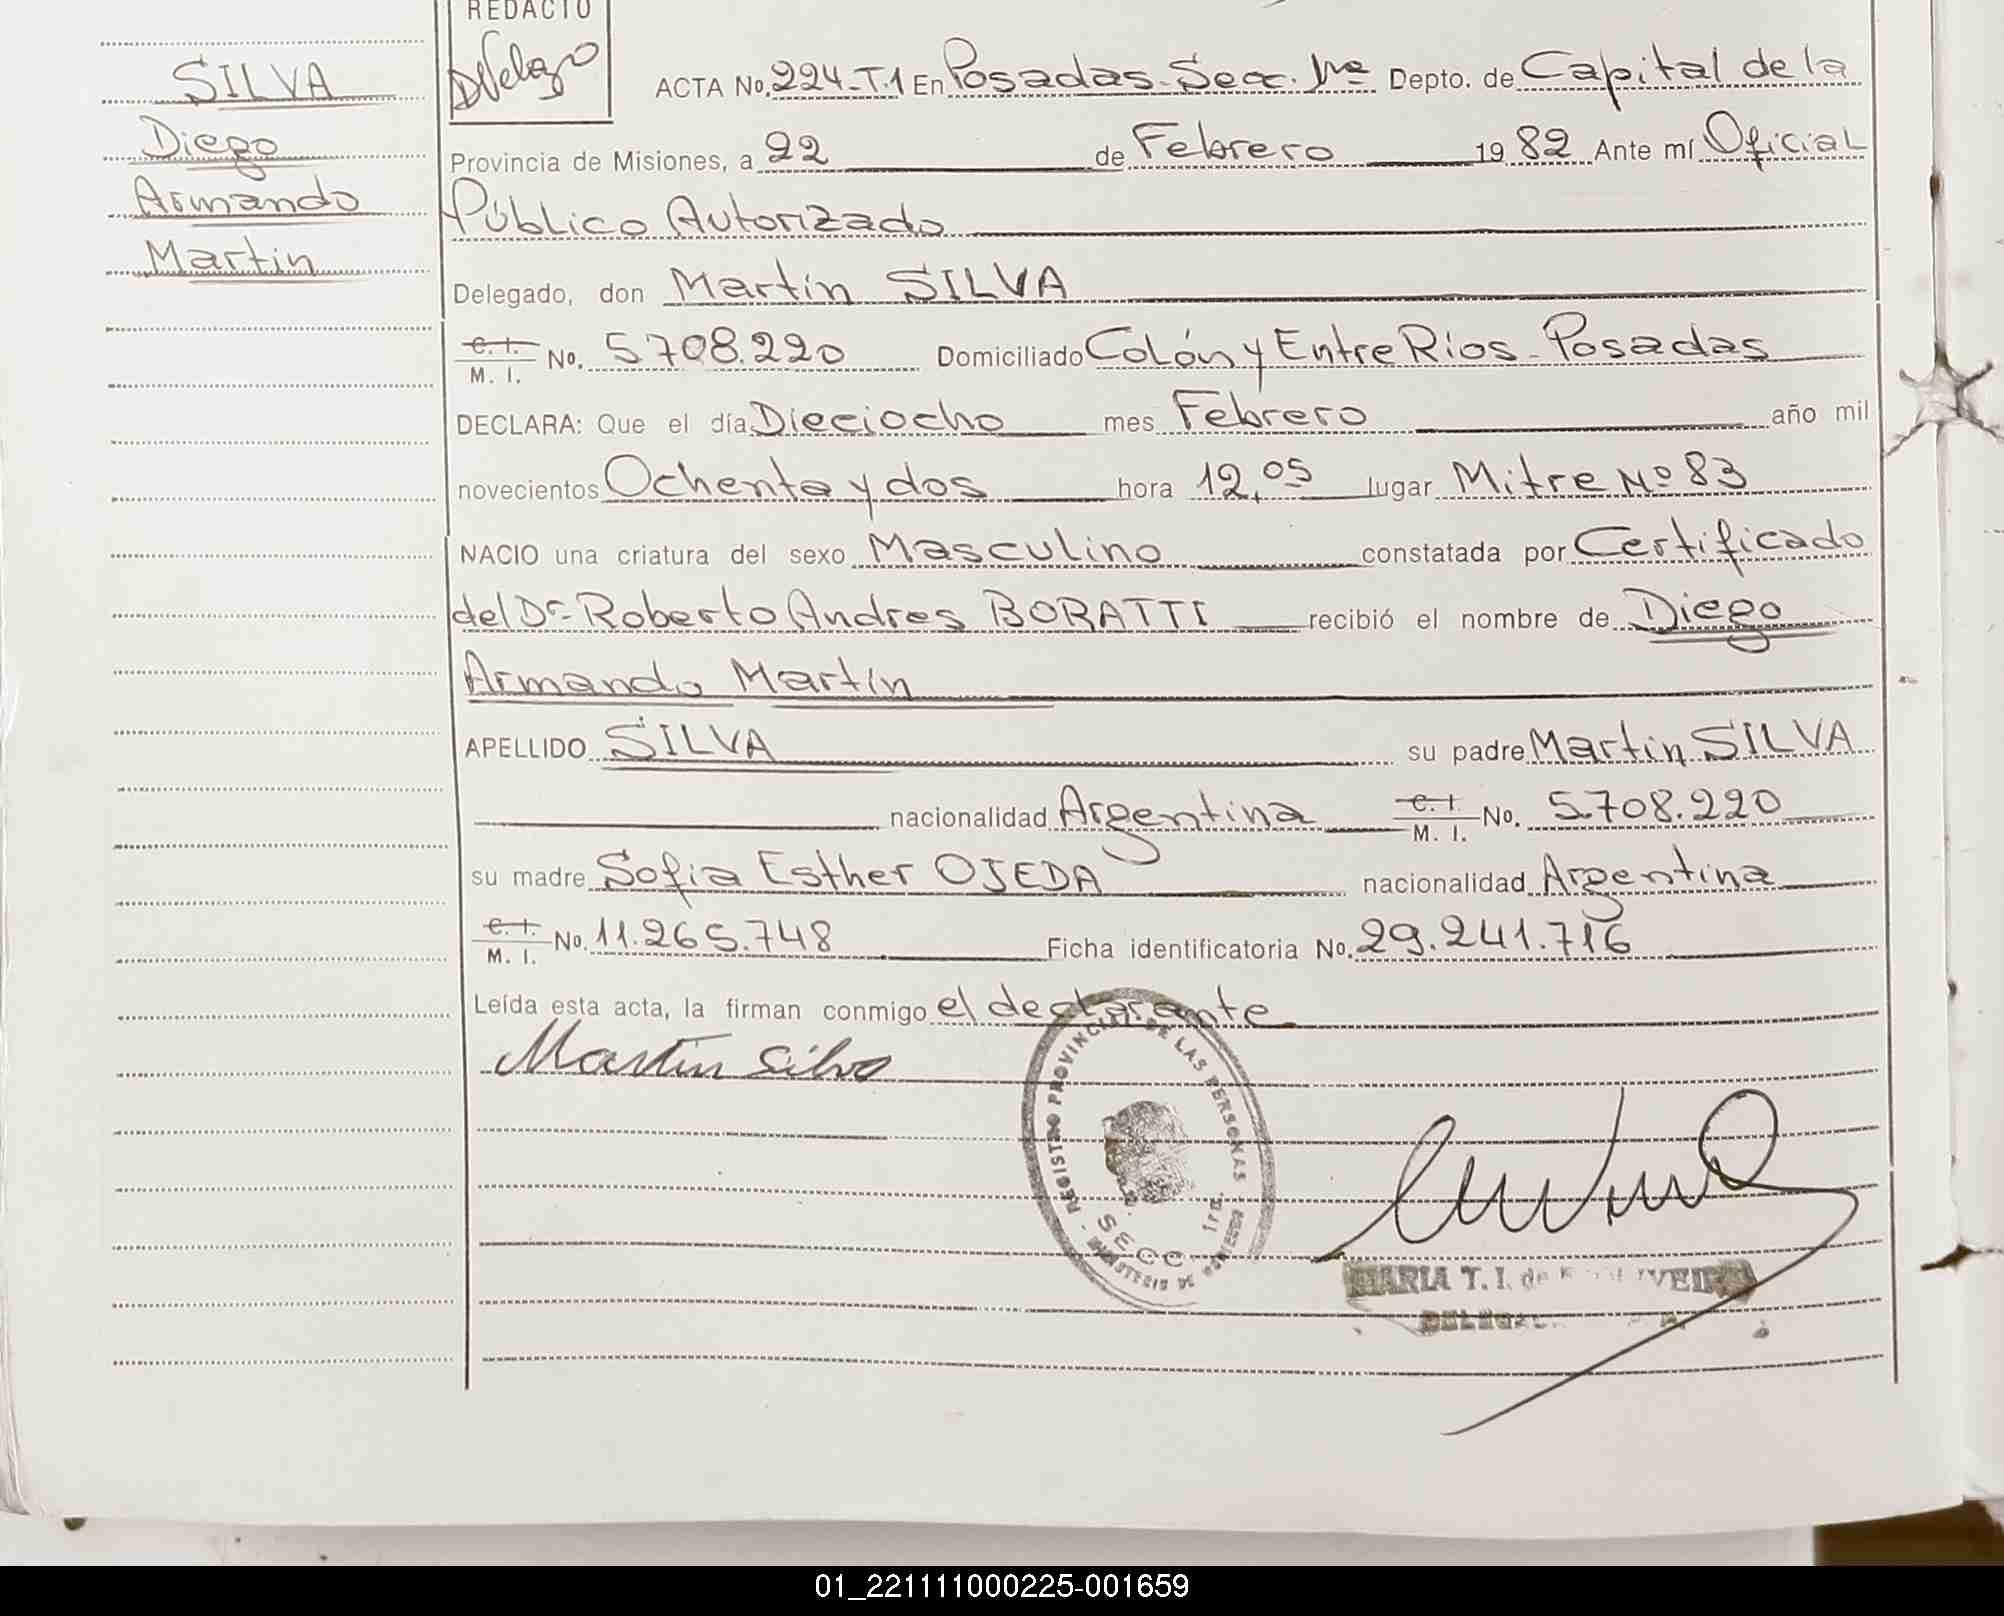 SILVA
Diego
Armando
Martin
REDACTO
DVelazo
ACTA No. 224-T.1 En Posadas-Secc. 1ra Depto. de Capital de la
Provincia de Misiones, a 22 de Febrero 19 82 Ante mí Oficial
Público Autorizado
Delegado, don Martín SILVA
C. I. M. I. No. 5.708.220 Domiciliado Colón y Entre Ríos - Posadas
DECLARA: Que el día Dieciocho mes Febrero año mil
novecientos Ochenta y dos hora 12,05 lugar Mitre Nº 83
NACIO una criatura del sexo Masculino constatada por Certificado
del Dr. Roberto Andres BORATTI recibió el nombre de Diego
Armando Martín
APELLIDO SILVA su padre Martín SILVA
nacionalidad Argentina C. I. M. I. No. 5.708.220
su madre Sofia Esther OJEDA nacionalidad Argentina
C. I. M. I. No. 11.265.748 Ficha identificatoria No. 29.241.716
Leída esta acta, la firman conmigo el declarante
Martín Silva
REGISTRO PROVINCIAL DE LAS PERSONAS
SECC. 1ra.
MINISTERIO DE
MARIA T. I. de
01_221111000225-001659